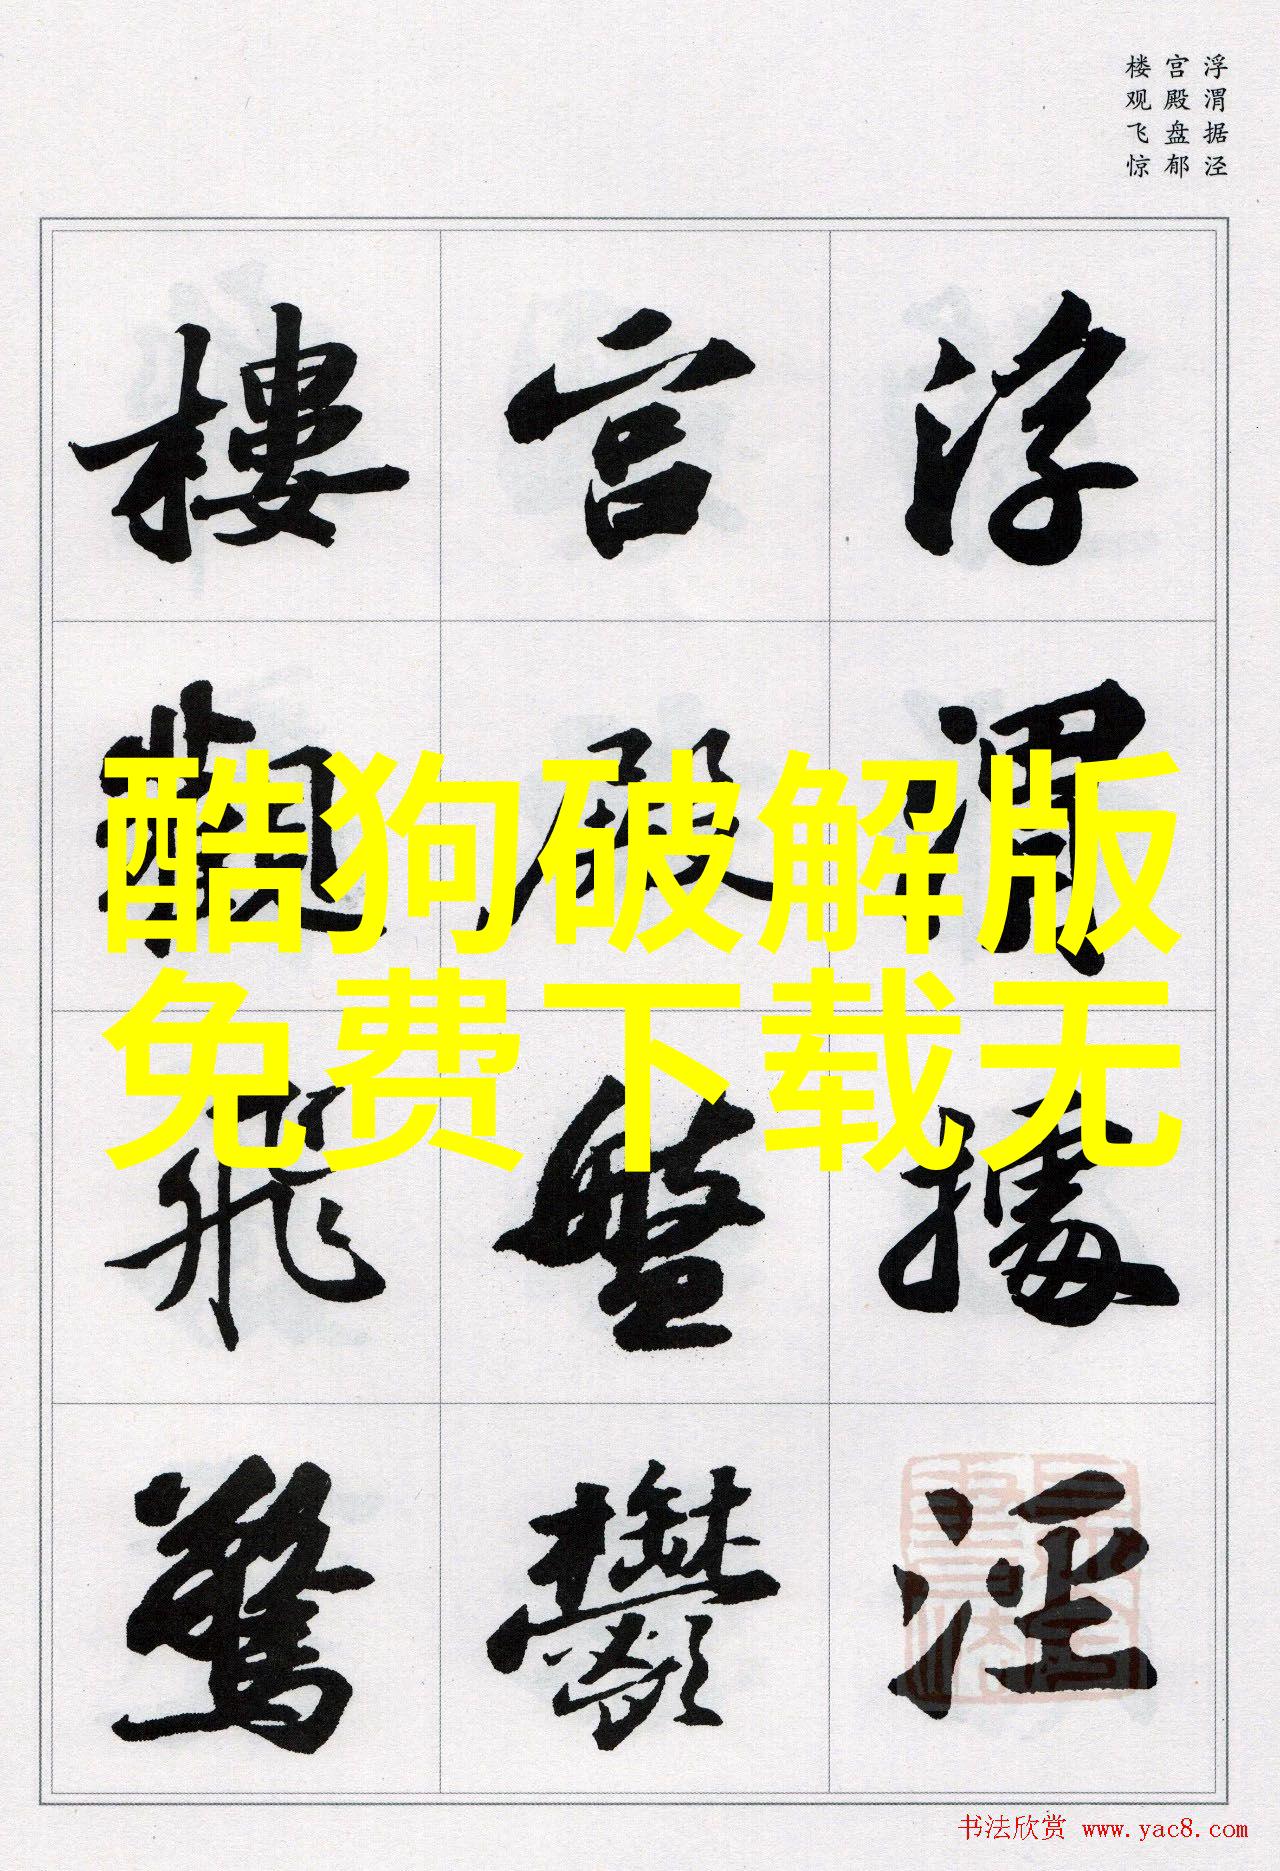 浮渭据泾
宫殿盘郁
楼观飞惊
浮渭據涇
宫殿盤鬱
樓觀飛驚
酷狗破解版
免费下载无
书法欣赏 www.yac8.com